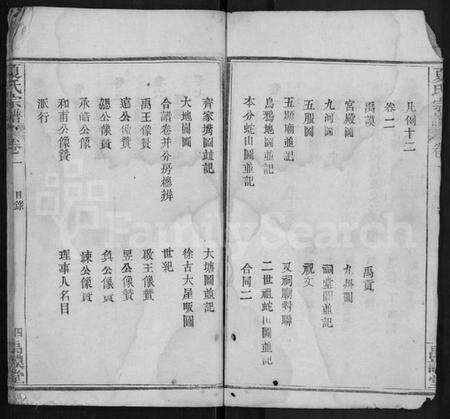 夏氏宗譜
凡例十二
卷二
禹謨
禹貢
宮殿圖
九州圖
九河圖
祠堂圖並記
五服圖
祝文
五顯廟並記
又祠廟對聯
烏鴉地圖並記
二世祖蛇山圖並記
本分蛇山圖並記
合同二
齊家塆圖並記
大塘圖並記
大地圖圖
徐古大星畈圖
合譜卷并分房總辨
世紀
禹王像贊
啟王像贊
遠公像贊
昱公像贊
總公像贊
承皓公像
諫公像贊
和甫公像贊
理事人名目
派行
夏氏宗譜
卷二
目錄
四
FamilySearch